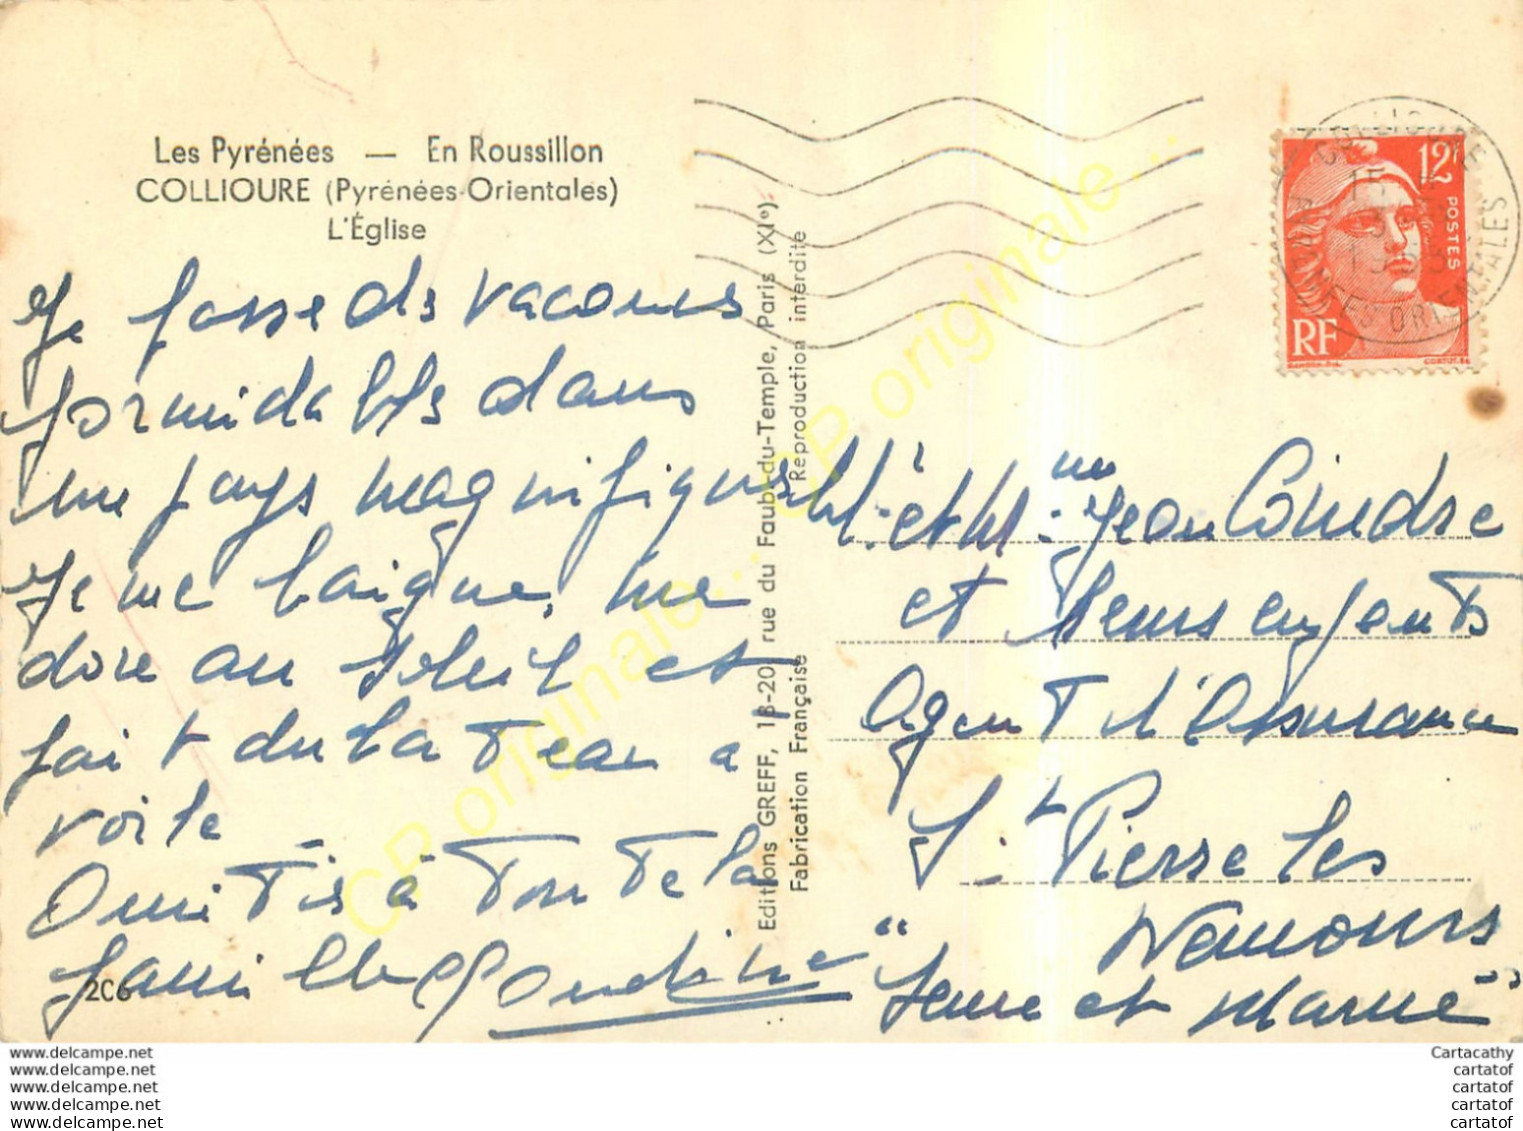 Les Pyrénées — En Roussillon
COLLIOURE (Pyrénées-Orientales)
L'Église
Je passe des vacances
formidables dans
un pays magnifique
Je me baigne, me
dore au soleil et
fait du bateau a
voile
Amitiés à toute la
famille
2C6
Editions GREFF, 18-20, rue du Faubg-du-Temple, Paris (XIe)
Fabrication Française Reproduction interdite
COLLIOURE
PYRENEES ORIENTALES
12F
POSTES
RF
GANDON.DEL CORTOT.SC
Mr et Mme Jean Coindre
et leurs enfants
Agent d'Assurance
St Pierre les
Nemours
"Seine et Marne"
CP originale...
CP originale...
www.delcampe.net
www.delcampe.net
www.delcampe.net
www.delcampe.net
www.delcampe.net
Cartacathy
cartatof
cartatof
cartatof
cartatof